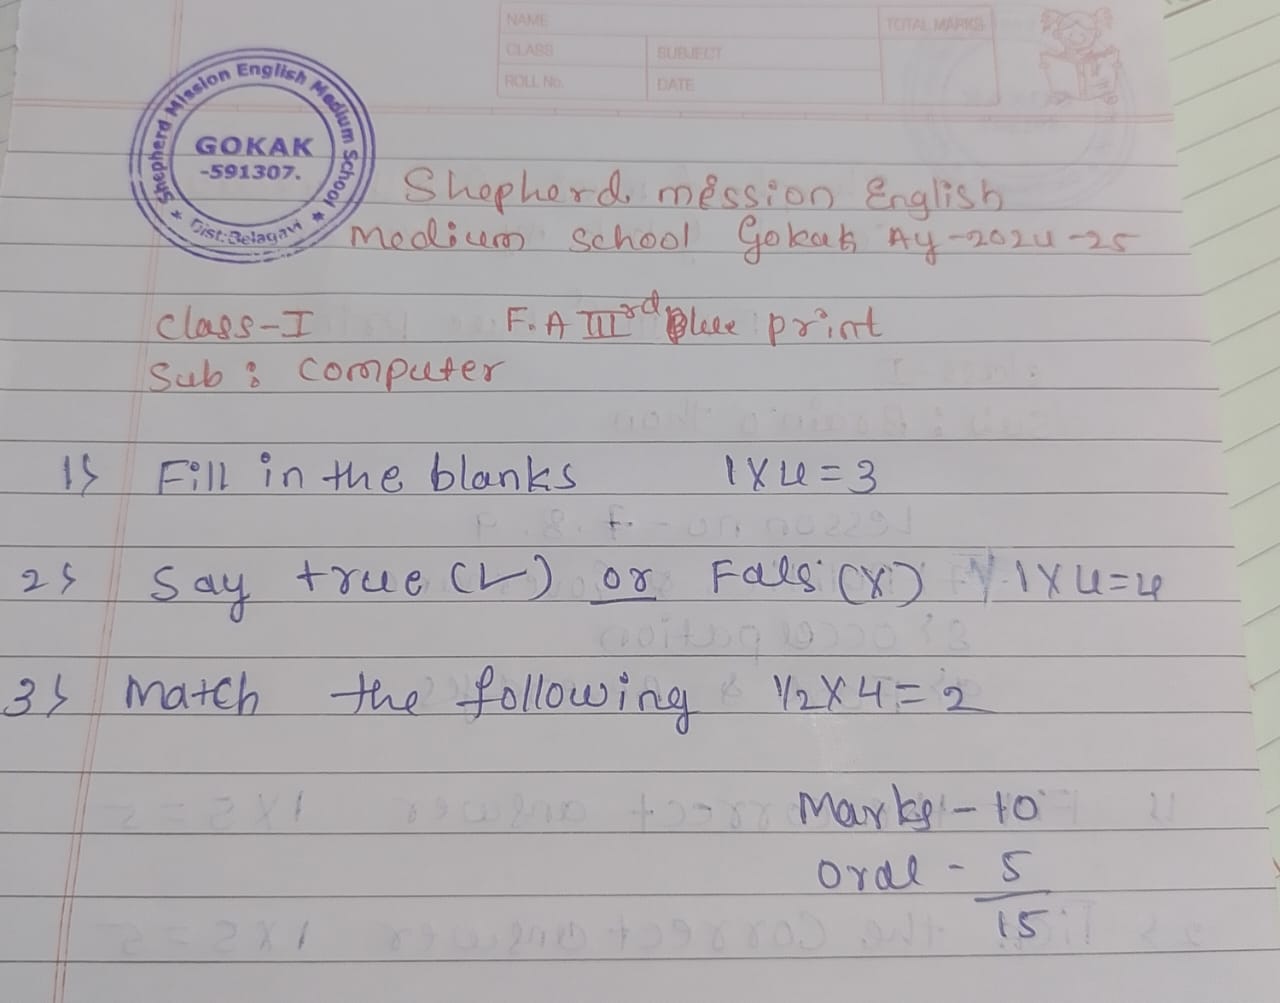 NAME
TOTAL MARKS
CLASS
SUBJECT
ROLL No.
DATE
Shepherd Mission English Medium School
GOKAK
-591307.
Dist:Belagavi
Shepherd mission English
Medium School Gokak AY-2024-25
Class-I F.A IIIrd Blue print
Sub : Computer
1) Fill in the blanks 1X4=3
2) Say true (✓) or Fals (X) 1X4=4
3) Match the following 1/2X4=2
Marks - 10
Oral - 5
15